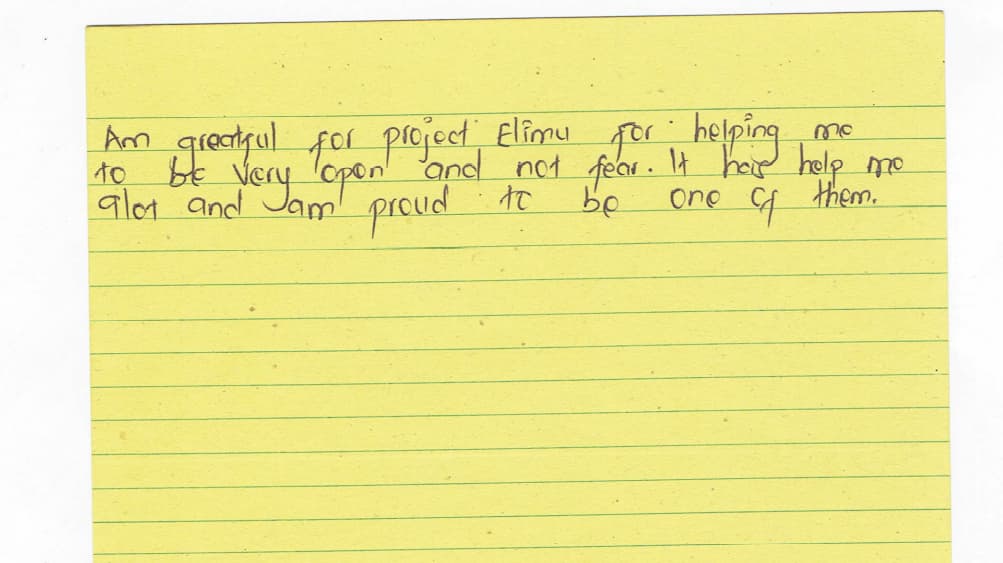 Am greatful for project Elimu for helping me
to be very open and not fear. It has help me
alot and Jam proud to be one of them.